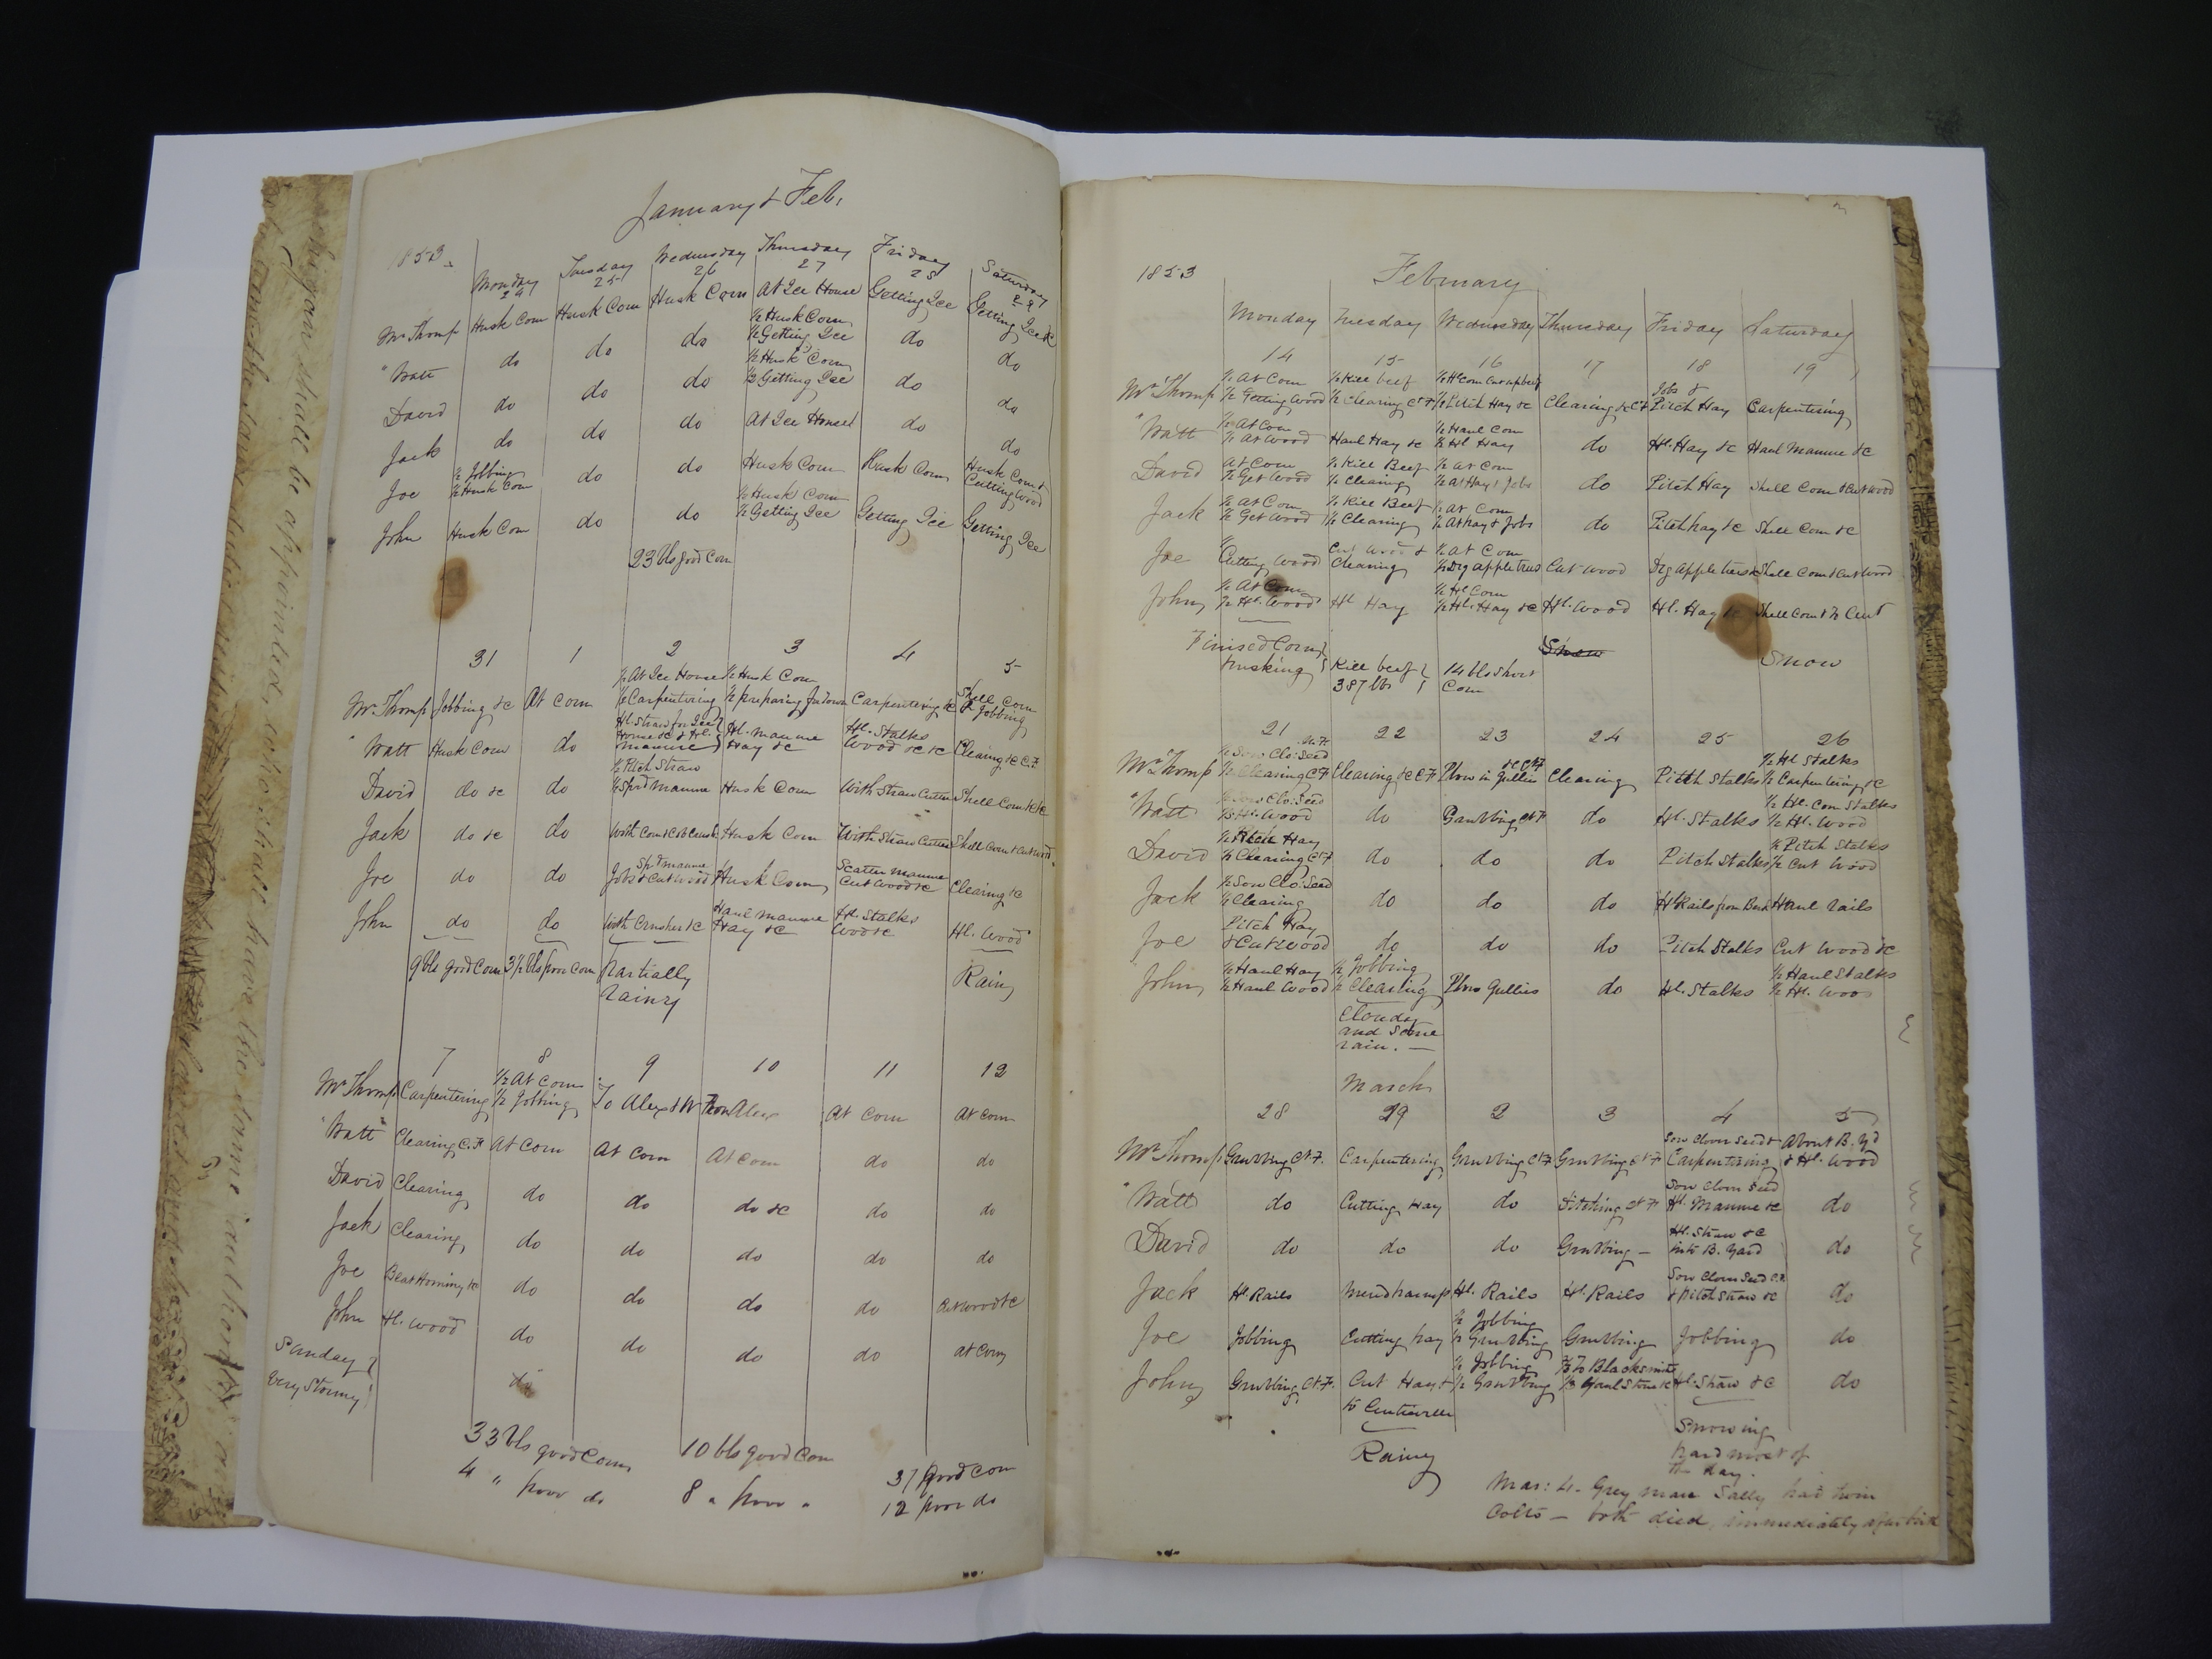 January & Feb.
1853
Monday Tuesday Wednesday Thursday Friday Saturday
24 25 26 27 28 29
Mr Thomp Husk Corn Husk Corn Husk Corn At Ice House Getting Ice Getting Ice &c
½ Husk Corn
" Watt do do do ½ Getting Ice do do
½ Husk Corn
David do do do ½ Getting Ice do do
Jack do do do At Ice House do do
½ Jobbing
Joe ½ Husk Corn do do Husk Corn Husk Corn Husk Corn &
Cutting Wood
½ Husk Corn
John Husk Corn do do ½ Getting Ice Getting Ice Getting Ice
23 bls good Corn
31 1 2 3 4 5
½ At Ice House ½ Husk Corn Shell Corn
Mr Thomp Jobbing &c At Corn ½ Carpentering ½ preparing for Town Carpentering &c & Jobbing
Hl. Straw for Ice Hl. Manure Hl. Stalks
" Watt Husk Corn do House &c & Hl. Hay &c Wood &c &c Clearing &c C.F.
manure
½ Pitch Straw
David do &c do ½ Sprd Manure Husk Corn With Straw Cutter Shell Corn &c &c
Jack do &c do With Corn & Cob Crush Husk Corn With Straw Cutter Shell Corn & Cut Wood
Sprd manure Scatter Manure
Joe do do Jobs & Cut Wood Husk Corn Cut Wood &c Clearing &c
Haul Manure Hl. Stalks
John do do With Crusher &c Hay &c Wood &c Hl. Wood
9 bls good Corn 3½ bls poor Corn Partially Rain
rainy
7 8 9 10 11 12
½ At Corn
Mr Thomp Carpentering ½ Jobbing To Alex & W From Alex At Corn At Corn
" Watt Clearing C.F. At Corn At Corn At Corn do do
David Clearing do do do &c do do
Jack Clearing do do do do do
Joe Beat Hominy &c do do do do Cut Wood &c
John Hl. Wood do do do do at Corn
Sunday
Very Stormy do
33 bls good Corn 10 bls good Corn 37 good Corn
4 " poor do 8 " poor " 12 poor do
1853 February
Monday Tuesday Wednesday Thursday Friday Saturday
14 15 16 17 18 19
½ At Corn ½ Kill beef ½ Hl Corn Cut up beef Jobs &
Mr Thomp ½ Getting Wood ½ Clearing Ct F ½ Pitch Hay &c Clearing &c C F Pitch Hay Carpentering
½ At Corn ½ Haul Corn
" Watt ½ At Wood Haul Hay &c ½ Hl Hay do Hl. Hay &c Haul Manure &c
At Corn ½ Kill Beef ½ At Corn
David ½ Get Wood ½ Clearing ½ At Hay & Jobs do Pitch Hay Shell Corn & Cut Wood
½ At Corn ½ Kill Beef ½ At Corn
Jack ½ Get Wood ½ Clearing ½ At hay & Jobs do Pitch hay &c Shell Corn &c
Cut Wood & ½ At Corn
Joe Cutting Wood Clearing ½ Dig apple trees Cut Wood Dig apple trees &c Shell Corn & Cut Wood
½ At Corn ½ Hl Corn
John ½ Hl. Wood Hl Hay ½ Hl. Hay &c Hl. Wood Hl. Hay &c Shell Corn & ½ Cut
Finised Corn Snow Snow
husking Kill beef 14 bls Short
387 lbs Corn
21 22 23 24 25 26
½ Sow Clo: Seed &c Ct F ½ Hl Stalks
Mr Thomp ½ Clearing C F Clearing &c C F Plow in Gullies Clearing Pitch Stalks ½ Carpentering &c
½ Sow Clo: Seed ½ Hl. Corn Stalks
" Watt ½ Hl. Wood do Grubbing Ct F do Hl. Stalks ½ Hl. Wood
½ Pitch Hay ½ Pitch Stalks
David ½ Clearing Ct F do do do Pitch Stalks ½ Cut Wood
½ Sow Clo: Seed
Jack ½ Clearing do do do Hl Rails from Bush Haul rails
Pitch Hay
Joe & Cut Wood do do do Pitch Stalks Cut Wood &c
½ Haul Hay ½ Jobbing ½ Haul Stalks
John ½ Haul Wood ½ Clearing Plow Gullies do Hl. Stalks ½ Hl. Wood
Cloudy
and Some
rain. —
March
28 1 2 3 4 5
Sow Clover Seed & About B. Yd
Mr Thomp Grubbing Ct F. Carpentering Grubbing Ct F Grubbing Ct F Carpentering & Hl. Wood
Sow Clover Seed
" Watt do Cutting Hay do Ditching Ct F Hl. Manure &c do
Hl. Straw &c
David do do do Grubbing — into B. Yard do
Sow Clover Seed C.F.
Jack Hl Rails Mend harness Hl. Rails Hl. Rails & pitch Straw &c do
½ Jobbing
Joe Jobbing Cutting hay ½ Grubbing Grubbing Jobbing do
½ Jobbing To Blacksmith
John Grubbing Ct. F. Cut Hay & ½ Grubbing Haul Stone &c Hl. Straw &c do
to Centreville
Rainy Snowing
hard most of
the day.
Mar: 4. Grey mare Sally had twin
Colts — both died, immediately after birth